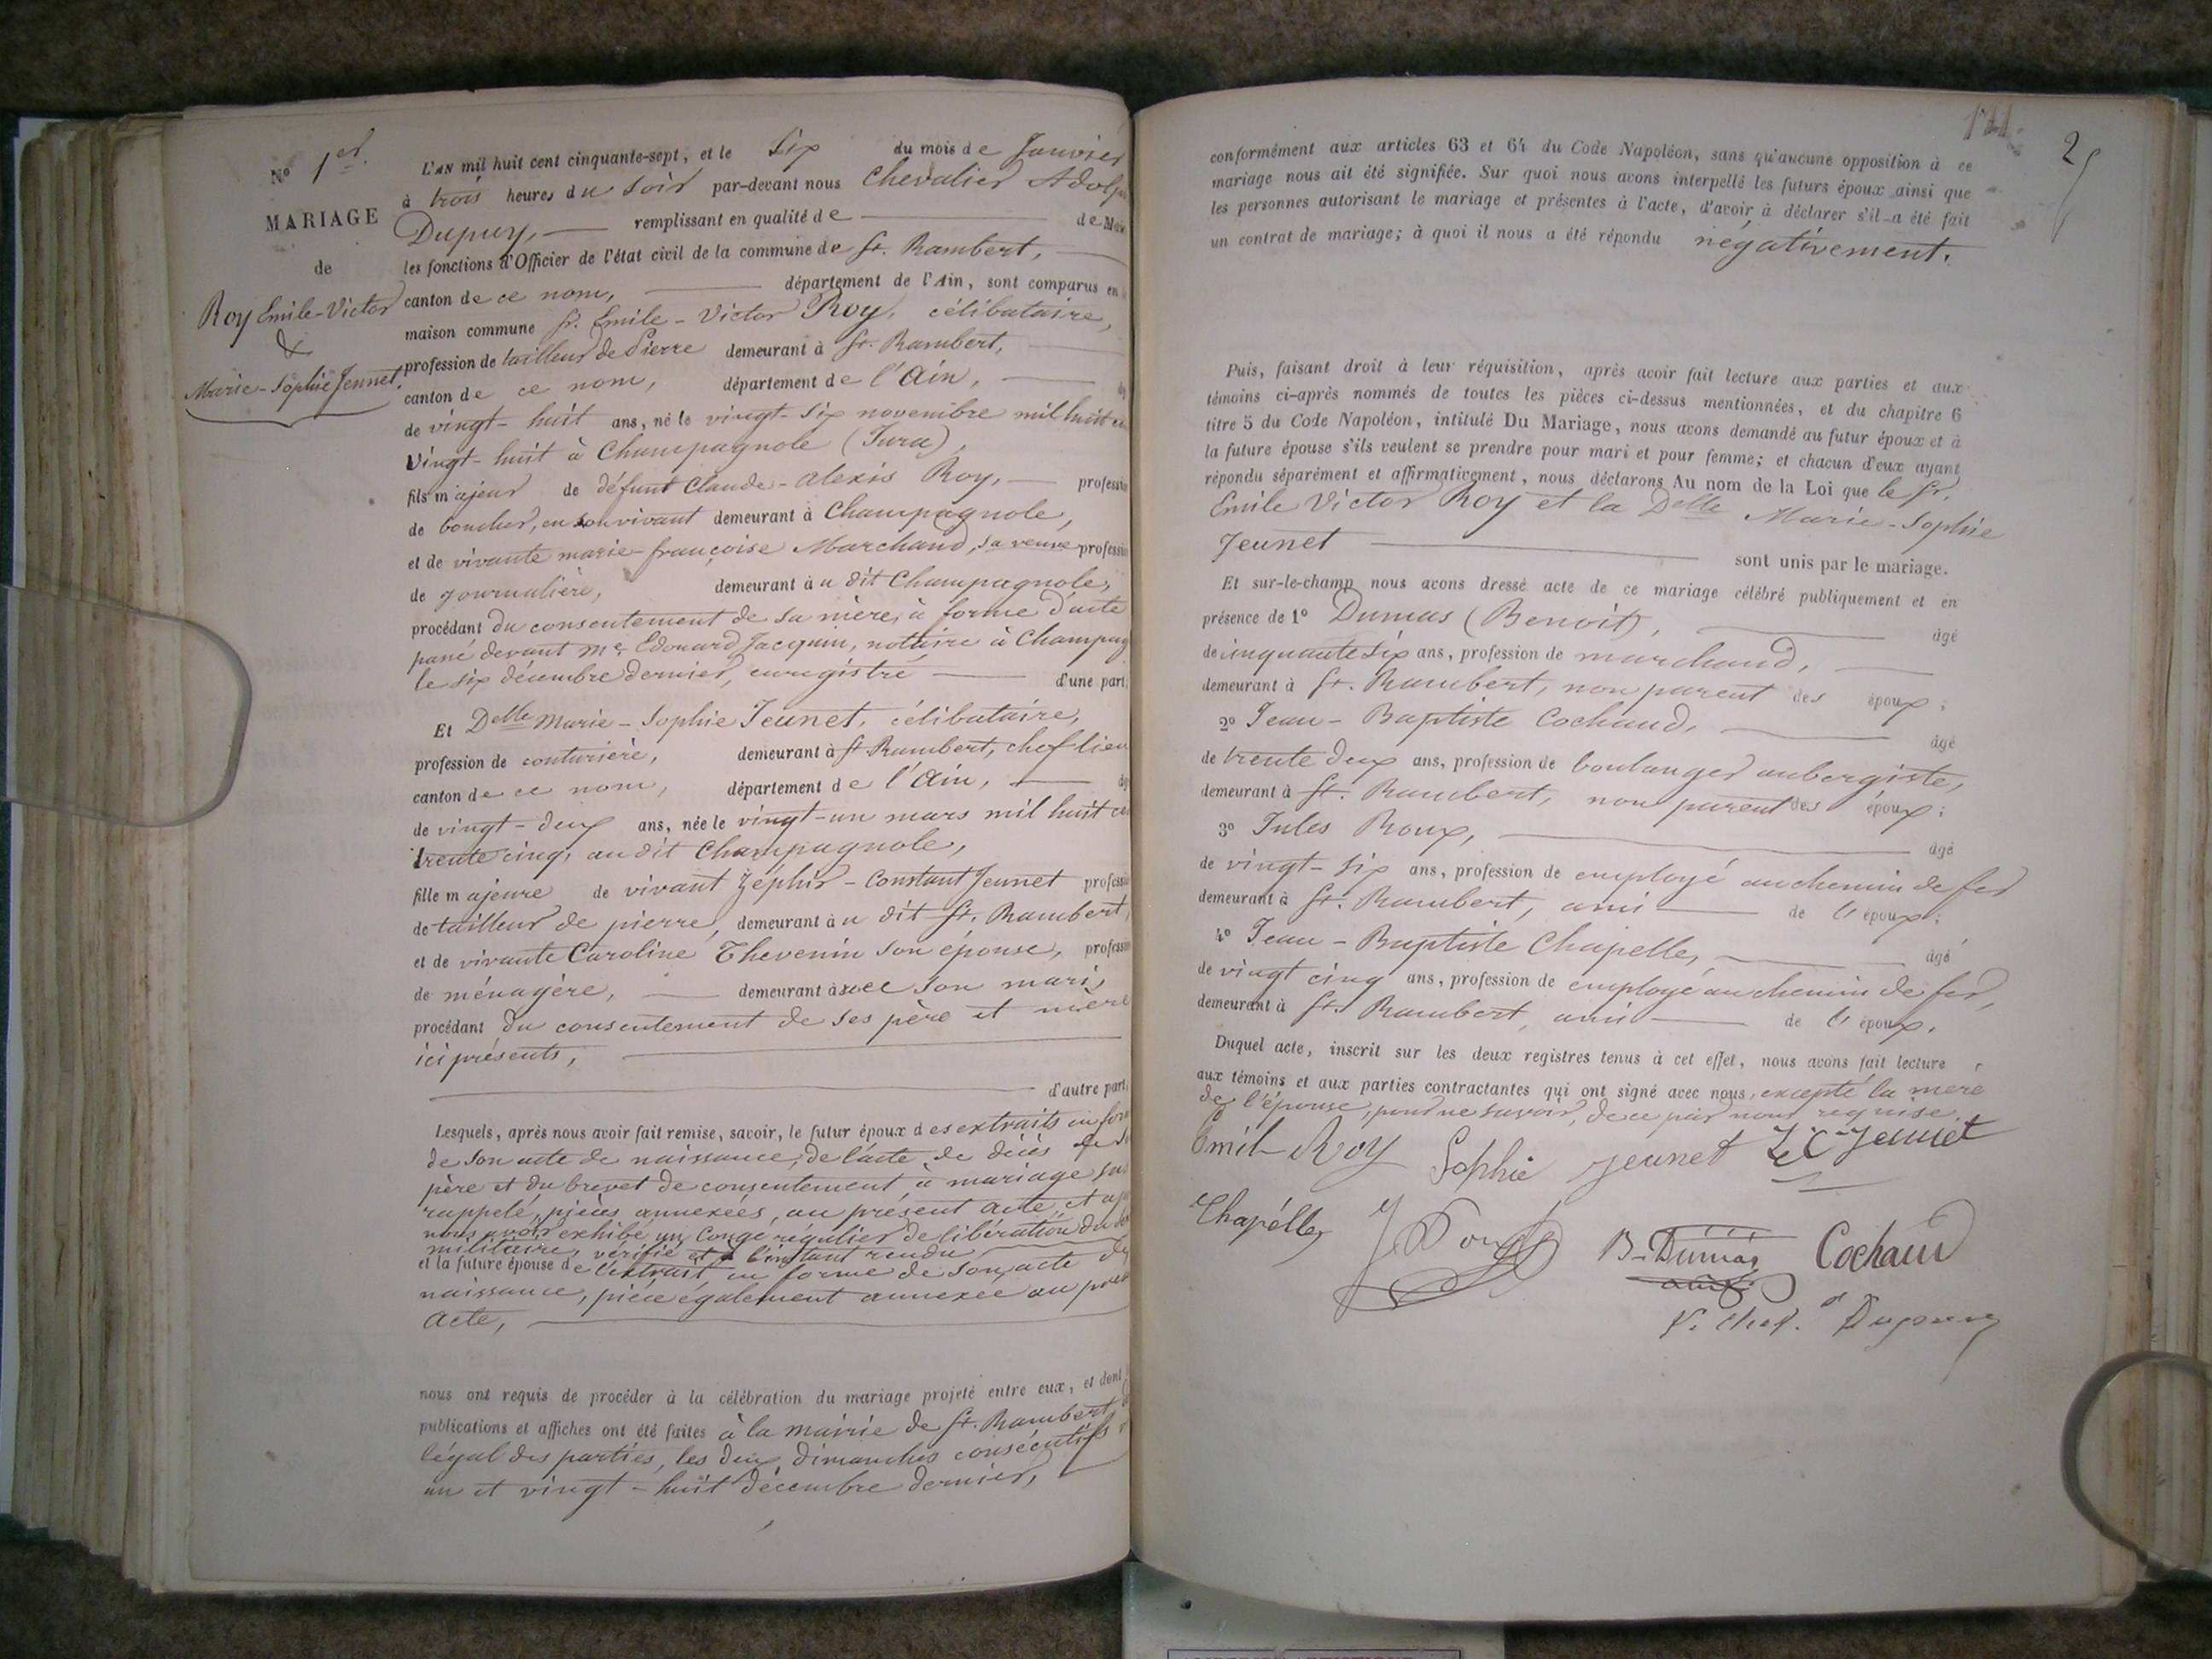 N° 1er.
MARIAGE
de
Roy Emile-Victor
&
Marie-Sophie Jeunet.
L'AN mil huit cent cinquante-sept, et le six du mois de Janvier
à trois heures du soir par-devant nous Chevalier Adolp
Dupuy, remplissant en qualité de de Mai
les fonctions d'Officier de l'état civil de la commune de St. Rambert,
canton de ce nom, département de l'Ain, sont comparus en
maison commune Sr. Emile-Victor Roy, célibataire,
profession de tailleur de Pierre demeurant à St. Rambert,
canton de ce nom, département de l'Ain,
de vingt-huit ans, né le vingt-six novembre mil huit ce
vingt-huit à Champagnole (Jura),
fils majeur de défunt Claude-Alexis Roy, professio
de boucher, en son vivant demeurant à Champagnole,
et de vivante marie-françoise Marchand, sa veuve professio
de journalière, demeurant au dit Champagnole,
procédant du consentement de sa mère, à forme d'acte
passé devant Me. Edouard Jacquin, nottaire à Champag
le six décembre dernier, enregistré d'une part,
Et Delle Marie-Sophie Jeunet, célibataire,
profession de couturière, demeurant à St. Rambert, chef lieu
canton de ce nom, département de l'Ain,
de vingt-deux ans, née le vingt-un mars mil huit ce
trente cinq, audit Champagnole,
fille majeure de vivant Zéphir-Constant Jeunet profess
de tailleur de pierre, demeurant au dit St. Rambert,
et de vivante Caroline Thevenin son épouse, profess
de ménagère, demeurant avec son mari,
procédant du consentement de ses père et mère
ici présents,
d'autre part,
Lesquels, après nous avoir fait remise, savoir, le futur époux des extraits en for
de son acte de naissance, de l'acte de décès de s
père et du brevet de consentement à mariage su
rappelé, pièces annexées, au présent acte, et ap
nous avoir exhibé un congé régulier de libération du
militaire, vérifié et à l'instant rendu
et la future épouse de l'extrait en forme de son acte de
naissance, pièce également annexée au prés
acte,
nous ont requis de procéder à la célébration du mariage projeté entre eux, et dont
publications et affiches ont été faites à la mairie de St. Rambert,
légal des parties, les deux dimanches consécutifs
un et vingt-huit décembre dernier,
2
conformément aux articles 63 et 64 du Code Napoléon, sans qu'aucune opposition à ce
mariage nous ait été signifiée. Sur quoi nous avons interpellé les futurs époux ainsi que
les personnes autorisant le mariage et présentes à l'acte, d'avoir à déclarer s'il a été fait
un contrat de mariage; à quoi il nous a été répondu négativement.
Puis, faisant droit à leur réquisition, après avoir fait lecture aux parties et aux
témoins ci-après nommés de toutes les pièces ci-dessus mentionnées, et du chapitre 6
titre 5 du Code Napoléon, intitulé Du Mariage, nous avons demandé au futur époux et à
la future épouse s'ils veulent se prendre pour mari et pour femme; et chacun d'eux ayant
répondu séparément et affirmativement, nous déclarons Au nom de la Loi que le Sr.
Emile Victor Roy et la Delle Marie-Sophie
Jeunet sont unis par le mariage.
Et sur-le-champ nous avons dressé acte de ce mariage célébré publiquement et en
présence de 1° Dumas (Benoit), âgé
de cinquante six ans, profession de marchand,
demeurant à St. Rambert, non parent des époux;
2° Jean-Baptiste Cochaud, âgé
de trente deux ans, profession de boulanger aubergiste,
demeurant à St. Rambert, non parent des époux;
3° Jules Roux, âgé
de vingt-six ans, profession de employé au chemin de fer
demeurant à St. Rambert, ami de l'époux;
4° Jean-Baptiste Chapelle, âgé
de vingt cinq ans, profession de employé au chemin de fer,
demeurant à St. Rambert, ami de l'époux.
Duquel acte, inscrit sur les deux registres tenus à cet effet, nous avons fait lecture
aux témoins et aux parties contractantes qui ont signé avec nous, excepté la mère
de l'épouse, pour ne savoir, de ce par nous requise.
Emile Roy Sophie Jeunet Z C Jeunet
Chapelle J Roux B-Dumas Cochaud
Dupuy